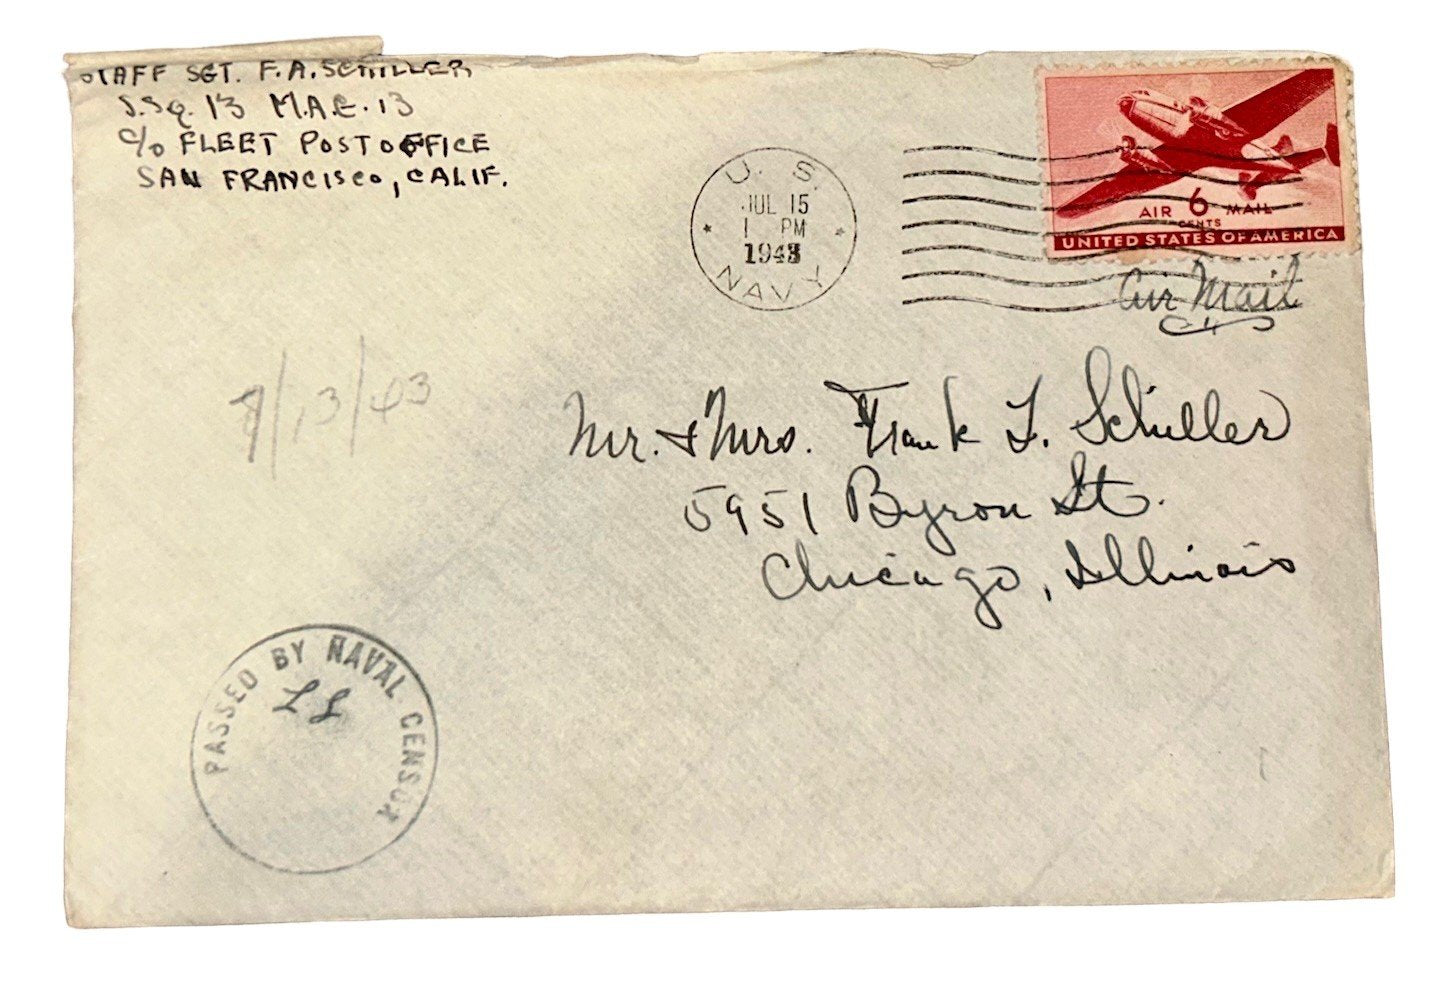 STAFF SGT. F. A. SCHILLER
S.Sq. 13 M.A.G. 13
c/o FLEET POST OFFICE
SAN FRANCISCO, CALIF.
U. S.
JUL 15
1 PM
1943
NAVY
AIR 6 MAIL
CENTS
UNITED STATES OF AMERICA
Air Mail
7/13/43
Mr. & Mrs. Frank F. Schiller
5951 Byron St.
Chicago, Illinois
PASSED BY NAVAL CENSOR